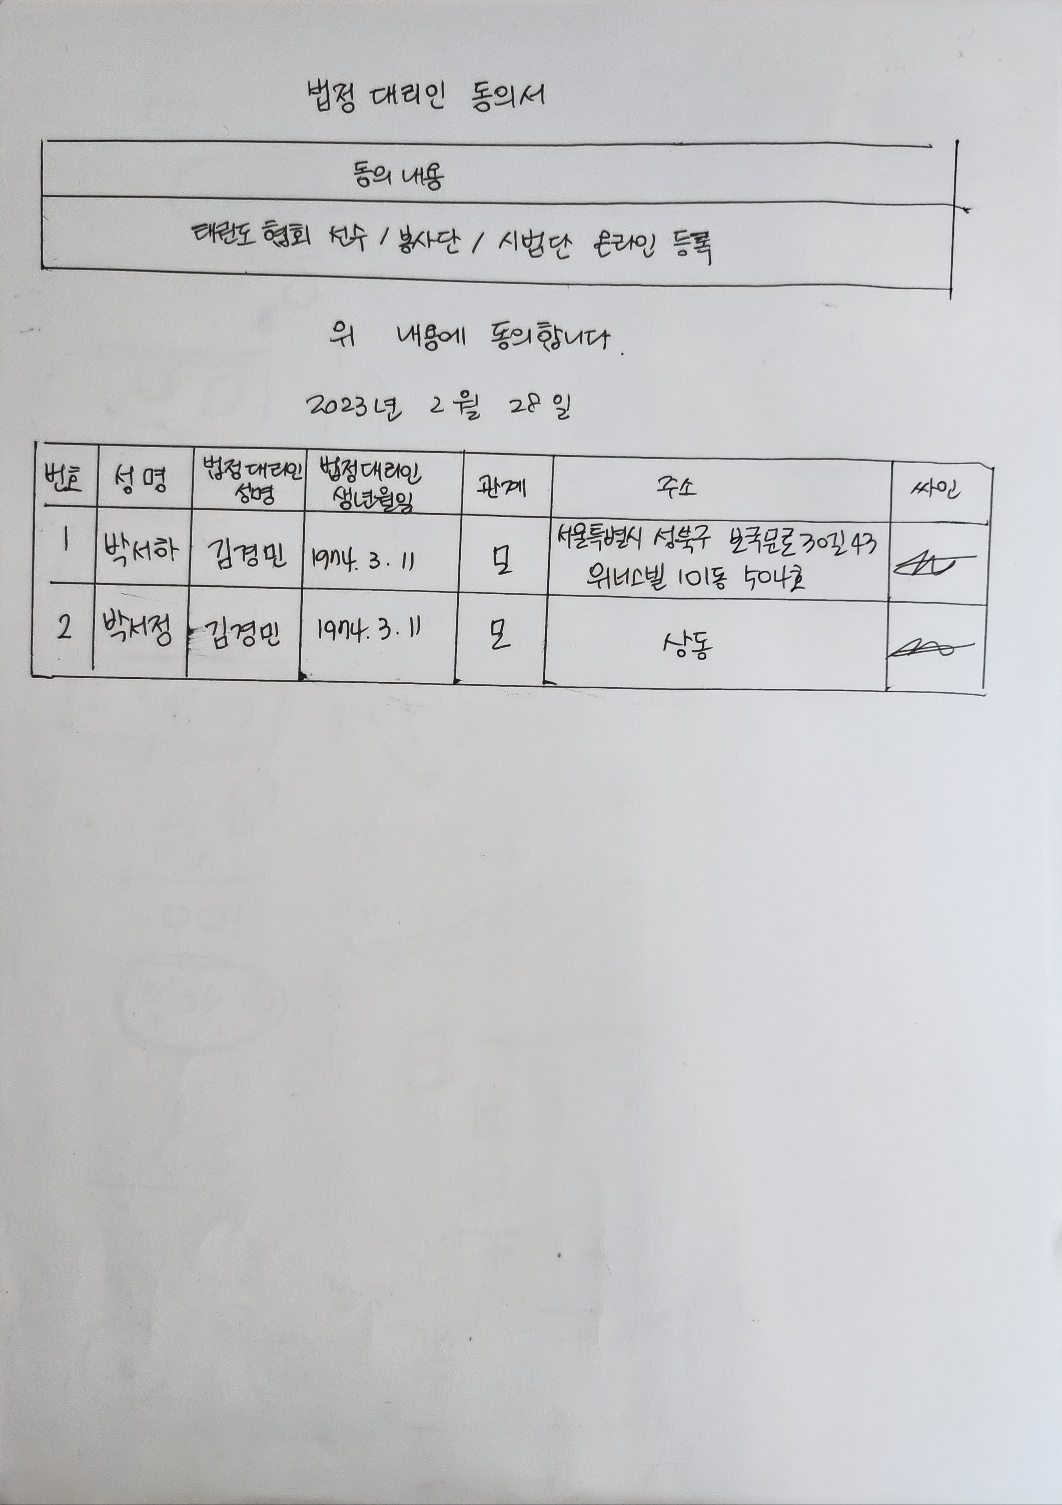 법정 대리인 동의서
동의 내용
태권도 협회 선수 / 봉사단 / 시범단 온라인 등록
위 내용에 동의합니다.
2023년 2월 28일
번호 성명 법정대리인 성명 법정대리인 생년월일 관계 주소 싸인
1 박서하 김경민 1974. 3. 11 모 서울특별시 성북구 보국문로30길 43
위너스빌 101동 504호
2 박서정 김경민 1974. 3. 11 모 상동